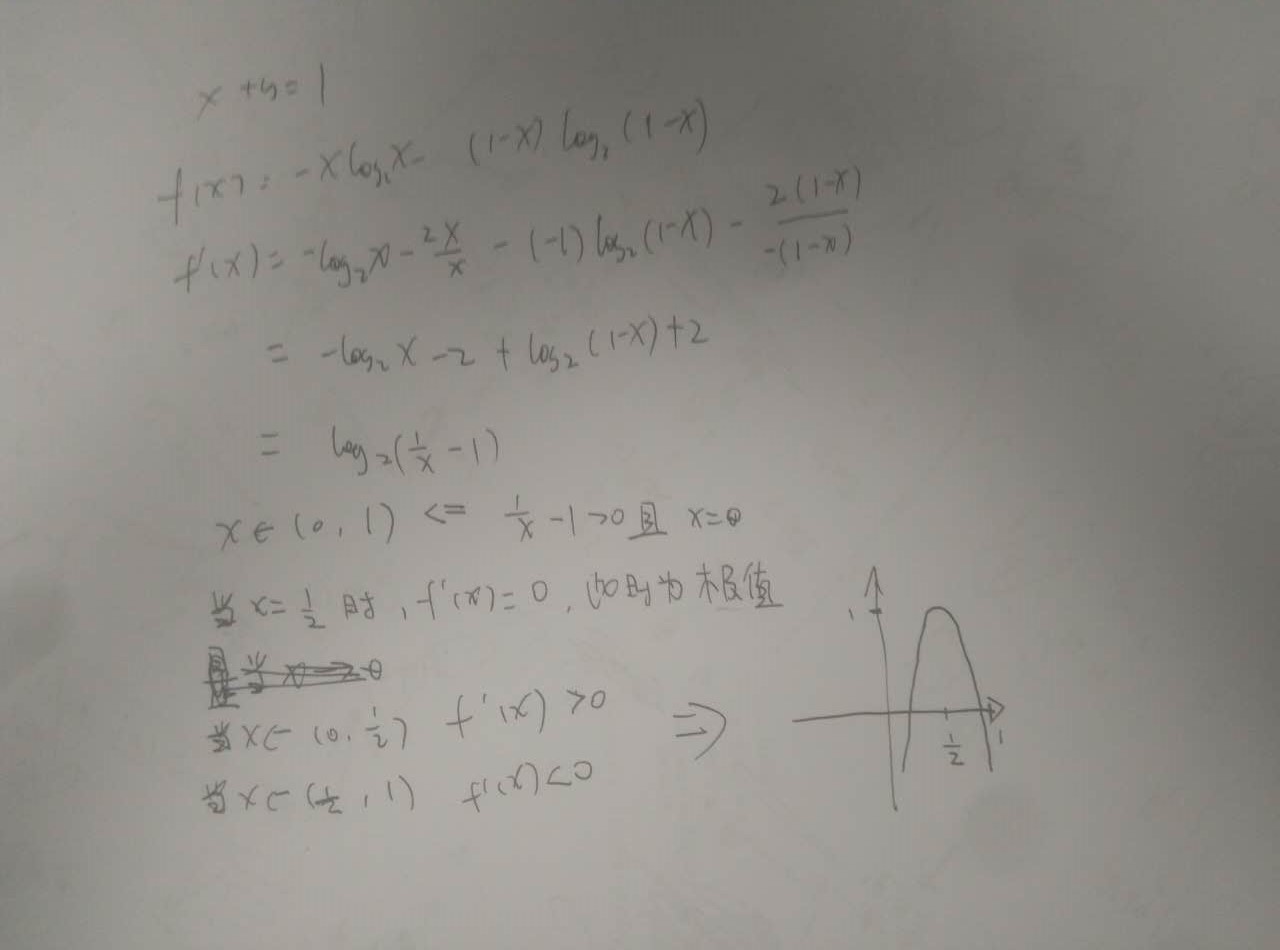 x + y = 1
f(x) = -x log₂x - (1-x) log₂(1-x)
f'(x) = -log₂x - 2x/x - (-1) log₂(1-x) - 2(1-x)/-(1-x)
= -log₂x - 2 + log₂(1-x) + 2
= log₂(1/x - 1)
x ∈ (0, 1) <= 1/x - 1 > 0 且 x =
当 x = 1/2 时, f'(x) = 0, 为极值
当 x ∈ (0, 1/2) f'(x) > 0 ⇒
当 x ∈ (1/2, 1) f'(x) < 0
1
1/2 1